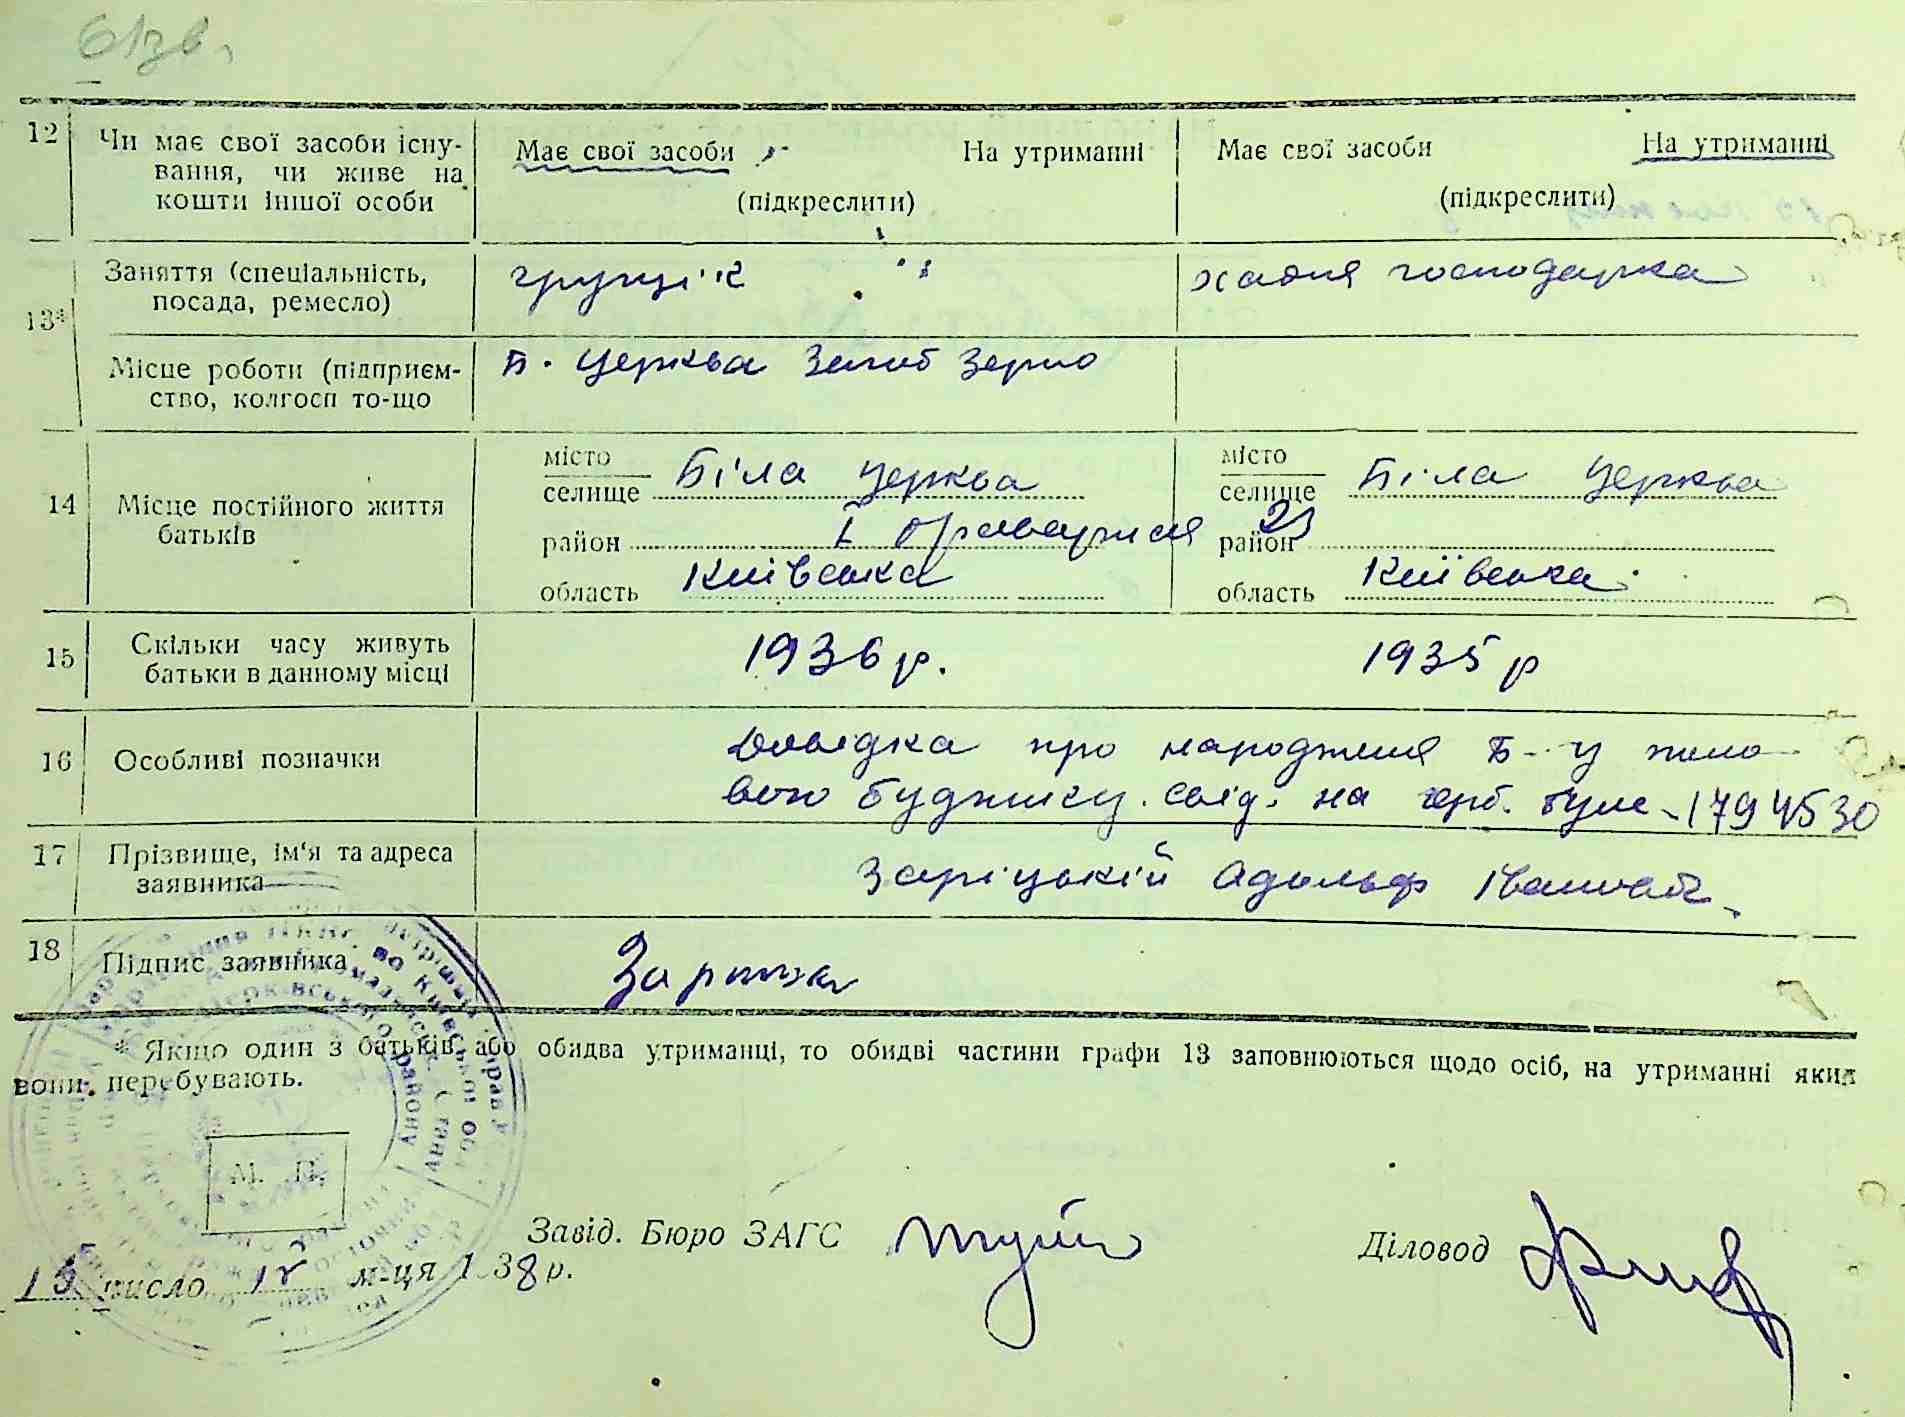 61зв.
12 Чи має свої засоби існу-
вання, чи живе на
кошти іншої особи
Має свої засоби На утриманні
(підкреслити)
Має свої засоби На утриманні
(підкреслити)
13* Заняття (спеціальність,
посада, ремесло)
грущік
хатня господарка
Місце роботи (підприєм-
ство, колгосп то-що
Б. Церква Заготзерно
14 Місце постійного життя
батьків
місто
селище Біла Церква
район
область Київська
місто
селище Біла Церква
район 23
область Київська
15 Скільки часу живуть
батьки в данному місці
1936 р.
1935 р
16 Особливі позначки
Довідка про народження Б-Ц поло
вого будинку. свід. на герб. бум. 1794530
17 Прізвище, ім'я та адреса
заявника
Заріцький Адольф Іванович
18 Підпис заявника
* Якщо один з батьків або обидва утриманці, то обидві частини графи 13 заповнюються щодо осіб, на утриманні яких
вони перебувають.
М. П.
15 число м-ця 1938 р.
Завід. Бюро ЗАГС
Діловод